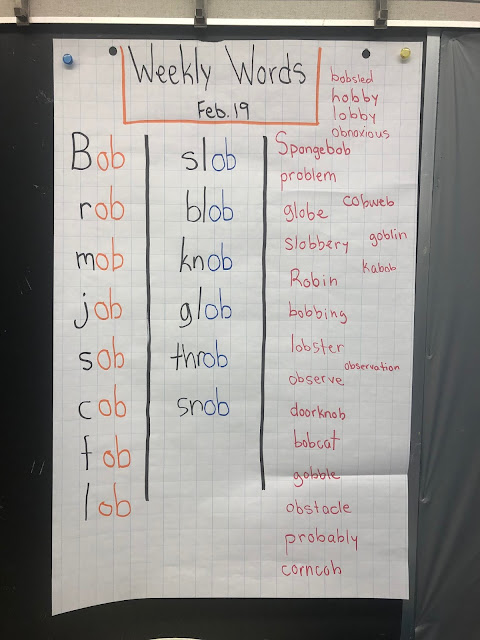 Weekly Words
Feb. 19
Bob
rob
mob
job
sob
cob
fob
lob
slob
blob
knob
glob
throb
snob
bobsled
hobby
lobby
obnoxious
Spongebob
problem
cobweb
globe
goblin
slobbery
kabob
Robin
bobbing
lobster
observation
observe
doorknob
bobcat
gobble
obstacle
probably
corncob